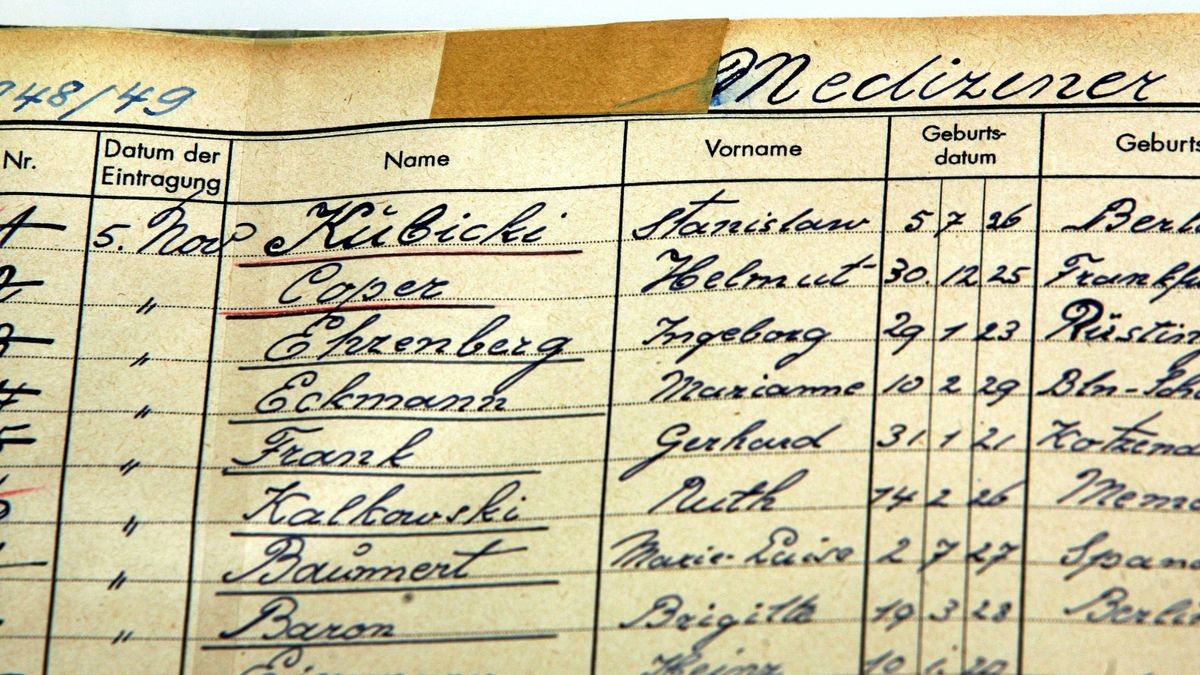 948/49 Medizener
Nr. Datum der Eintragung Name Vorname Geburts-datum Geburts
1 5. Nov Kubicki Stanislaw 5 7 26 Berli
2 " Coper Helmut 30. 12 25 Frankfu
3 " Ehrenberg Ingeborg 29 1 23 Rüstin
4 " Eckmann Marianne 10 2 29 Bln-Sch
5 " Frank Gerhard 31 1 21 Kotzend
" Kalkowski Ruth 14 2 26 Mem
" Baumert Marie-Luise 2 7 27 Span
" Baron Brigitte 19 3 28 Berlin
Heinz 10